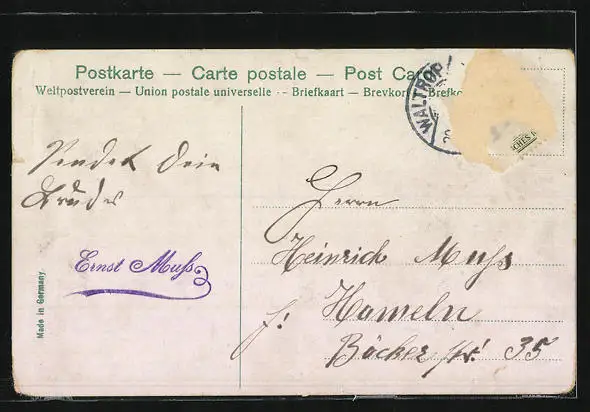 Postkarte — Carte postale — Post Ca
Weltpostverein — Union postale universelle -- Briefkaart — Brevkor — Brefko
WALTROP
SCHES R
Sendet Dein
Bruder
Ernst Muß
Made in Germany.
Herrn
Heinrich Muß
Hameln
Bäcker 35